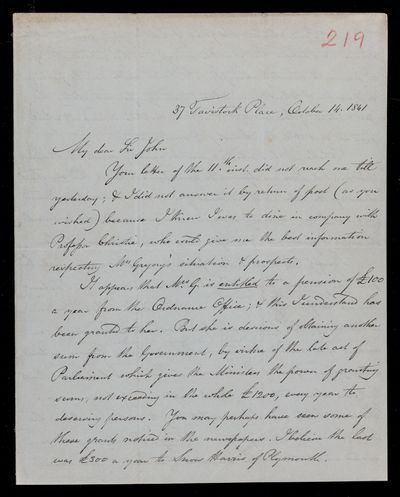 219
37 Tavistock Place, October 14. 1841
My dear Sir John
Your letter of the 11.th inst. did not reach me till
yesterday; & I did not answer it by return of post (as you
wished) because I knew I was to dine in company with
Professor Christie, who could give me the best information
respecting Mrs Gregory's situation & prospects.
It appears that Mrs G. is entitled to a pension of £100
a year from the Ordnance Office; & this I understand has
been granted to her. But she is desirous of obtaining another
sum from the Government, by virtue of the late act of
Parliament which gives the Ministers the power of granting
sums, not exceeding in the whole £1200, every year to
deserving persons. You may perhaps have seen some of
these grants noticed in the newspapers. I believe the last
was £300 a year to Snow Harris of Plymouth.